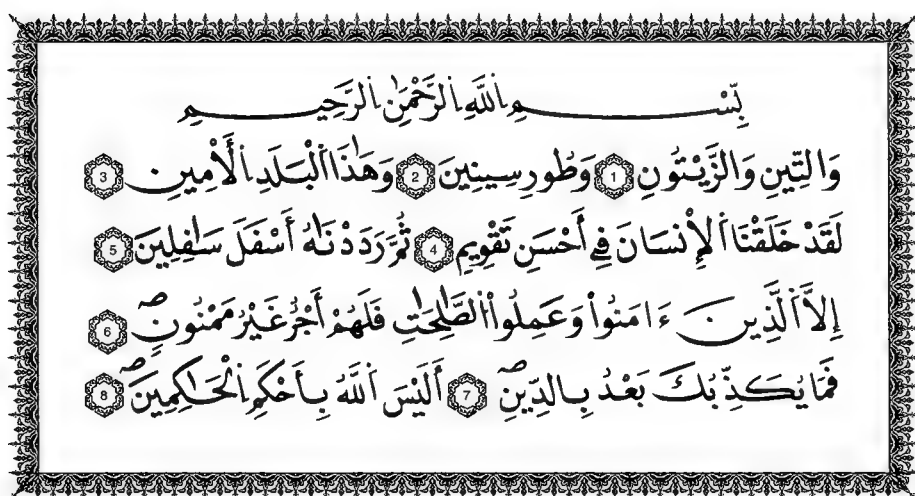 بِسْمِ اللَّهِ الرَّحْمَٰنِ الرَّحِيمِ
وَالتِّينِ وَالزَّيْتُونِ 1 وَطُورِ سِينِينَ 2 وَهَٰذَا الْبَلَدِ الْأَمِينِ 3
لَقَدْ خَلَقْنَا الْإِنسَانَ فِي أَحْسَنِ تَقْوِيمٍ 4 ثُمَّ رَدَدْنَٰهُ أَسْفَلَ سَٰفِلِينَ 5
إِلَّا الَّذِينَ ءَامَنُواْ وَعَمِلُواْ الصَّٰلِحَٰتِ فَلَهُمْ أَجْرٌ غَيْرُ مَمْنُونٍ 6
فَمَا يُكَذِّبُكَ بَعْدُ بِالدِّينِ 7 أَلَيْسَ اللَّهُ بِأَحْكَمِ الْحَٰكِمِينَ 8